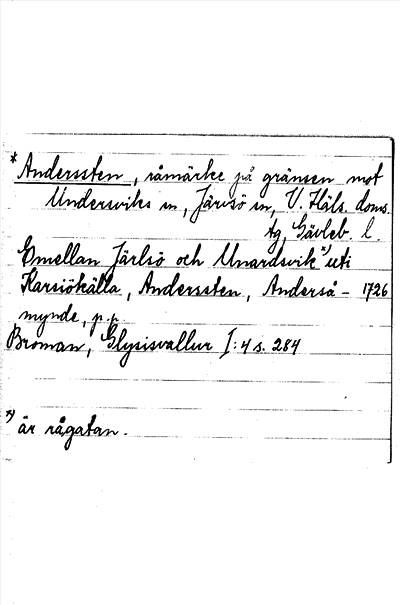 * Anderssten, råmärke på gränsen mot
Undersviks sn, Järvsö sn, V. Häls. doms.
tg, Gävleb. l.
Emellan Järlsö och Unardsvik x) uti
Karsiökälla, Anderssten, Anderså- 1726
mynde, p.p.
Broman, Glysisvallur I:4 s. 284
x) är rågatan.